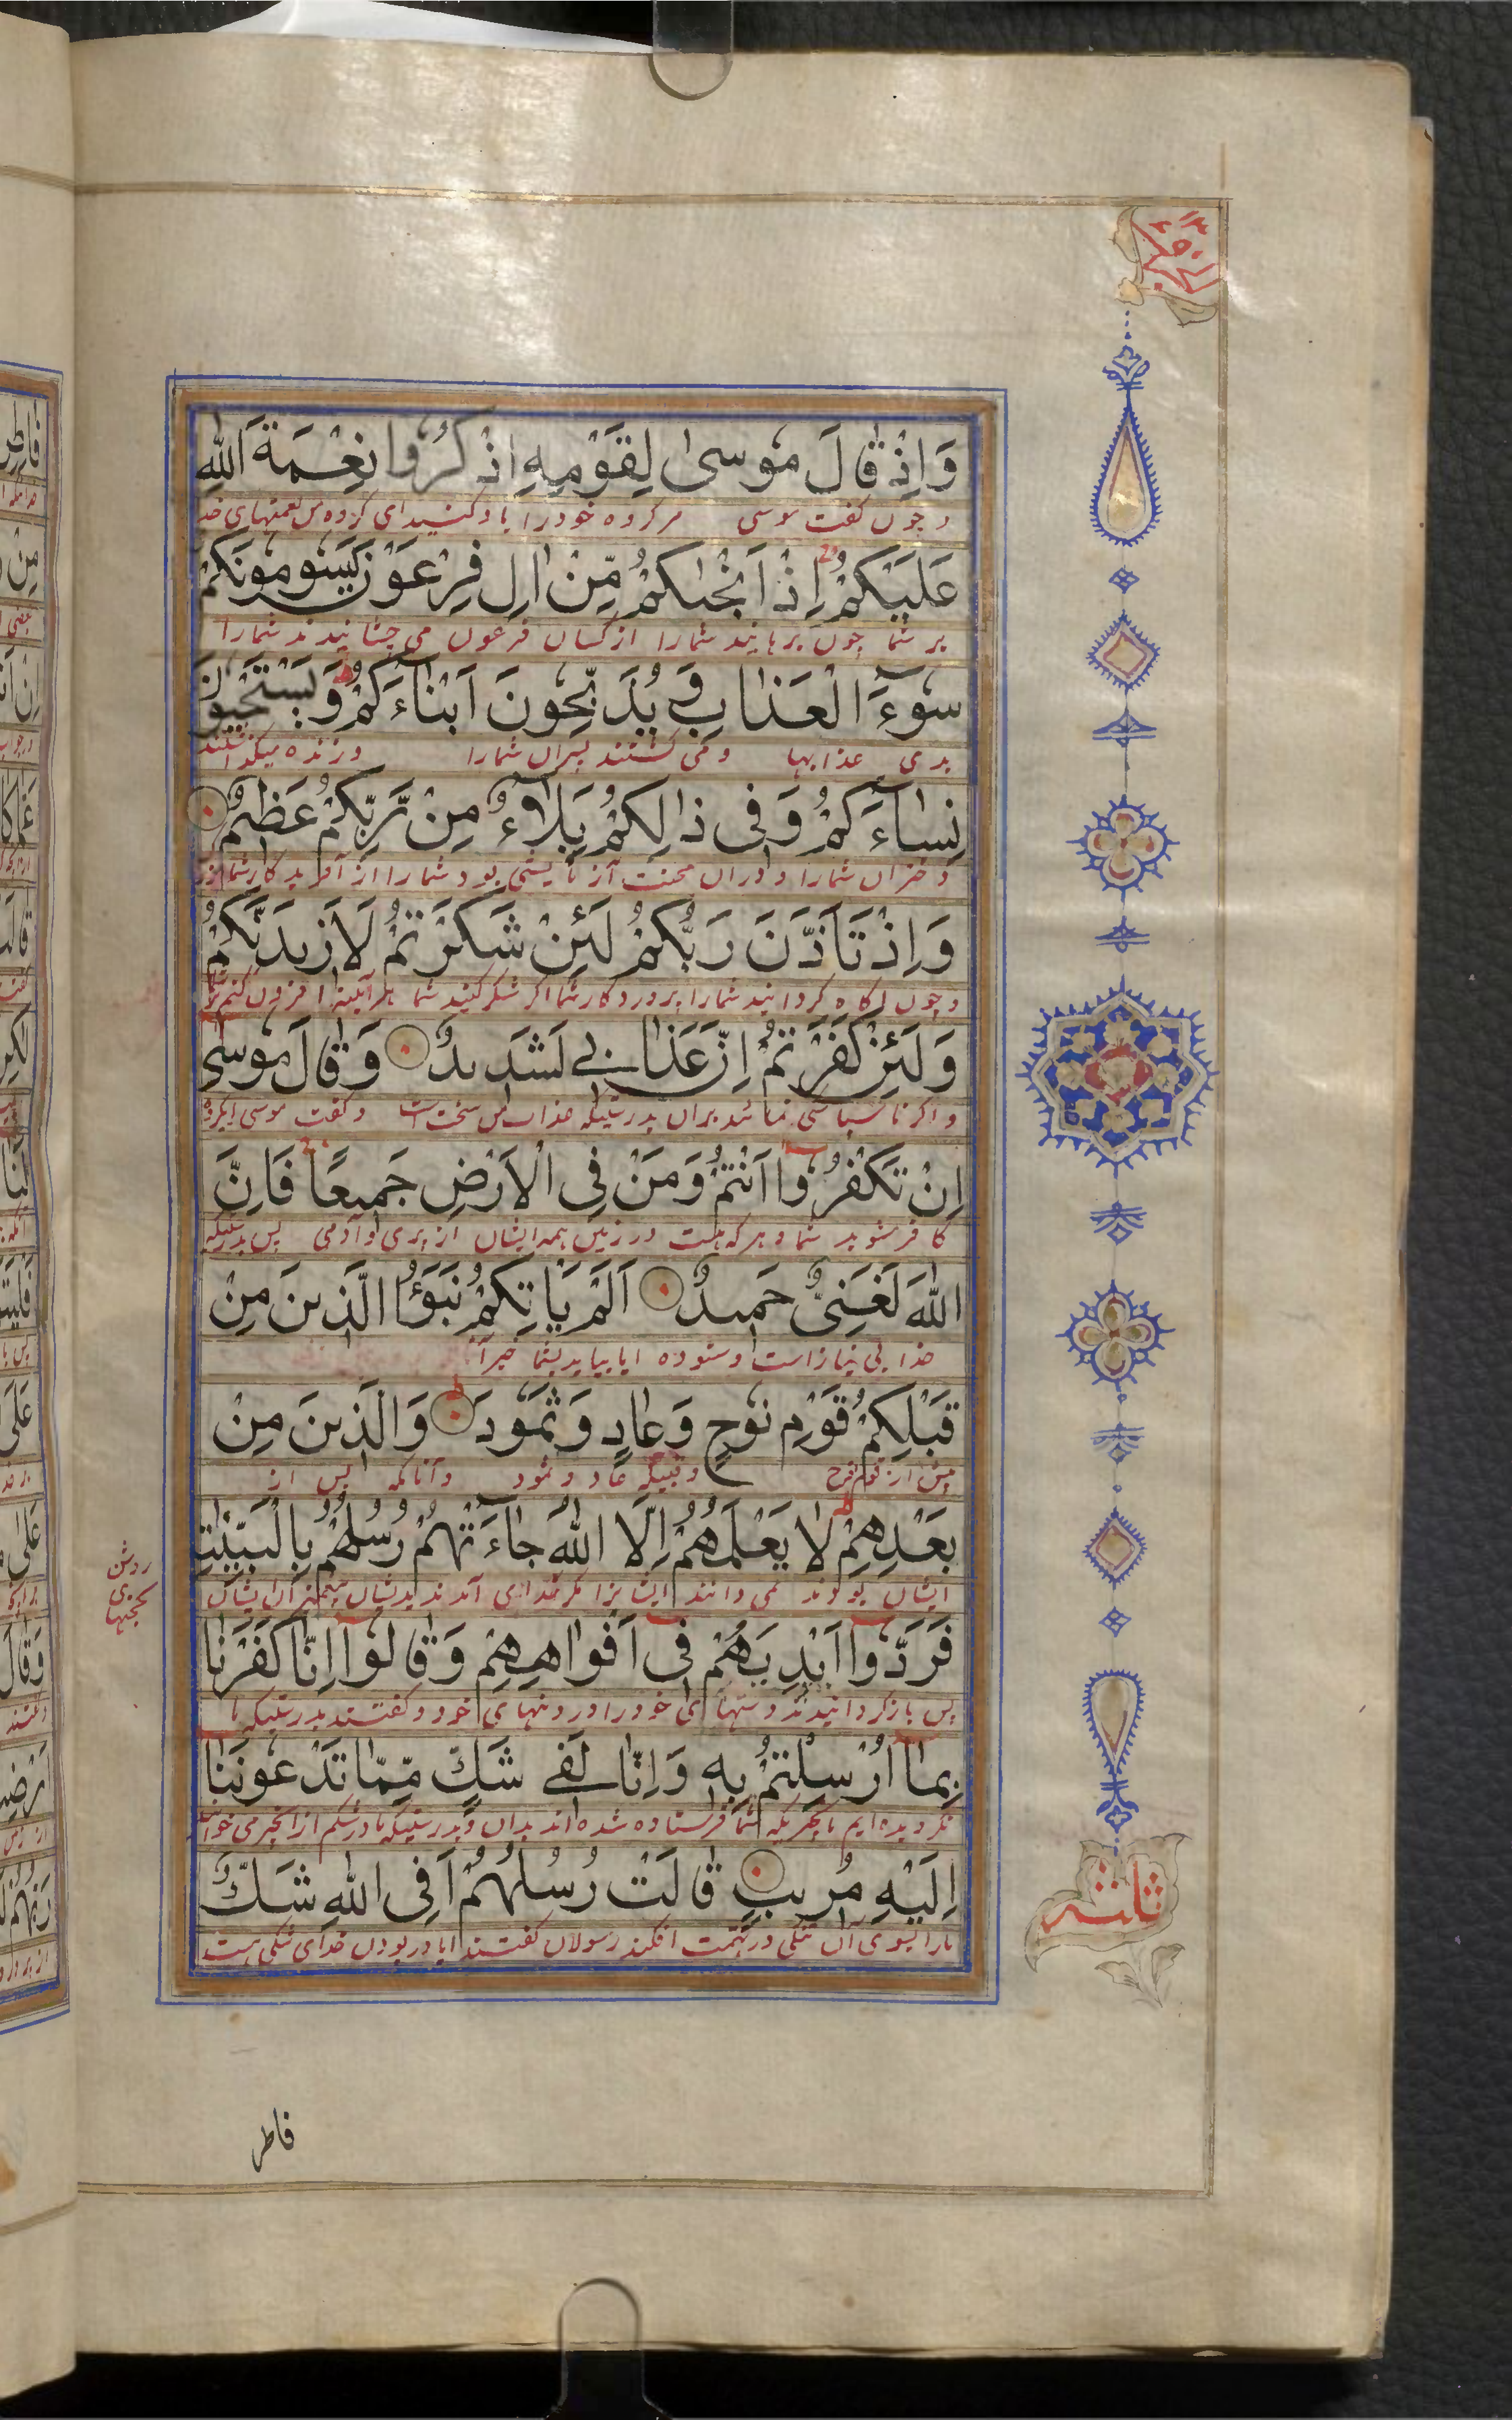 وَاِذْ قالَ موسىٰ لِقَوْمِهِ اذْكُرُوا نِعْمَةَ اللهِ
و چون گفت موسی مر گروه خود را یاد کنید ای گروه من نعمتهای خدا
عَلَيْكُمْ اِذْ اَنْجٰىكُمْ مِّنْ اٰلِ فِرْعَوْنَ يَسُومُونَكُمْ
بر شما چون برهانید شما را از کسان فرعون می چشانیدند شما را
سُوءَ الْعَذٰابِ وَيُذَبِّحُونَ اَبْنٰاءَكُمْ وَيَسْتَحْيُونَ
بدی عذابها و می کشتند پسران شما را و زنده میگذاشتند
نِسٰاءَكُمْ وَفى ذٰلِكُمْ بَلاٰءٌ مِنْ رَّبِّكُمْ عَظيمٌ
دختران شما را و دران محنت آزمایشی بود شما را از آفریدگار شما
وَاِذْ تَاَذَّنَ رَبُّكُمْ لَئِنْ شَكَرْتُمْ لَاَزيدَنَّكُمْ
و چون آگاه گردانید شما را پروردگار شما اگر شکر کنید شما هرآینه افزون کنم
وَلَئِنْ كَفَرْتُمْ اِنَّ عَذٰابى لَشَديدٌ وَقٰالَ موسى
و اگر ناسپاسی نمائید بران بدرستیکه عذاب من سخت است و گفت موسی
اِنْ تَكْفُرُوا اَنْتُمْ وَمَنْ فِى الْاَرْضِ جَميعًا فَاِنَّ
کافر شوید شما و هر که هست در زمین همه ایشان از پری و آدمی پس بدرستیکه
اللهَ لَغَنِىٌّ حَميدٌ اَلَمْ يَاْتِكُمْ نَبَؤُا الَّذينَ مِنْ
خدا بی نیاز است و ستوده ایا نیاید بشما خبر آنا
قَبْلِكُمْ قَوْمِ نُوحٍ وَعٰادٍ وَثَمُودَ وَالَّذينَ مِنْ
پیش از قوم نوح و قبیله عاد و ثمود و آنانکه پس از
بَعْدِهِمْ لاٰ يَعْلَمُهُمْ اِلَّا اللهُ جٰاءَتْهُمْ رُسُلُهُمْ بِالْبَيِّنٰتِ
ایشان بودند نمی دانند ایشانرا مگر خدای آمدند بدیشان پیغمبران ایشان
روشن
بحجتهای
فَرَدُّوا اَيْدِيَهُمْ فى اَفْوٰاهِهِمْ وَقٰالُوا اِنّٰا كَفَرْنٰا
پس باز گردانیدند دستهای خود را در دهنهای خود و گفتند بدرستیکه ما
بِمٰا اُرْسِلْتُمْ بِه وَاِنّٰا لَفى شَكٍّ مِمّٰا تَدْعُونَنٰا
نگرویده ایم بآنچیزیکه شما فرستاده شده اند بدان و بدرستیکه ما در شکیم از آنچیز می خوانید
اِلَيْهِ مُريبٍ قٰالَتْ رُسُلُهُمْ اَفِى اللهِ شَكٌّ
ما را بسوی آن شکی در تهمت افکند رسولان گفتند ایا در بودن خدای شکی است
ثلثه
فاطر